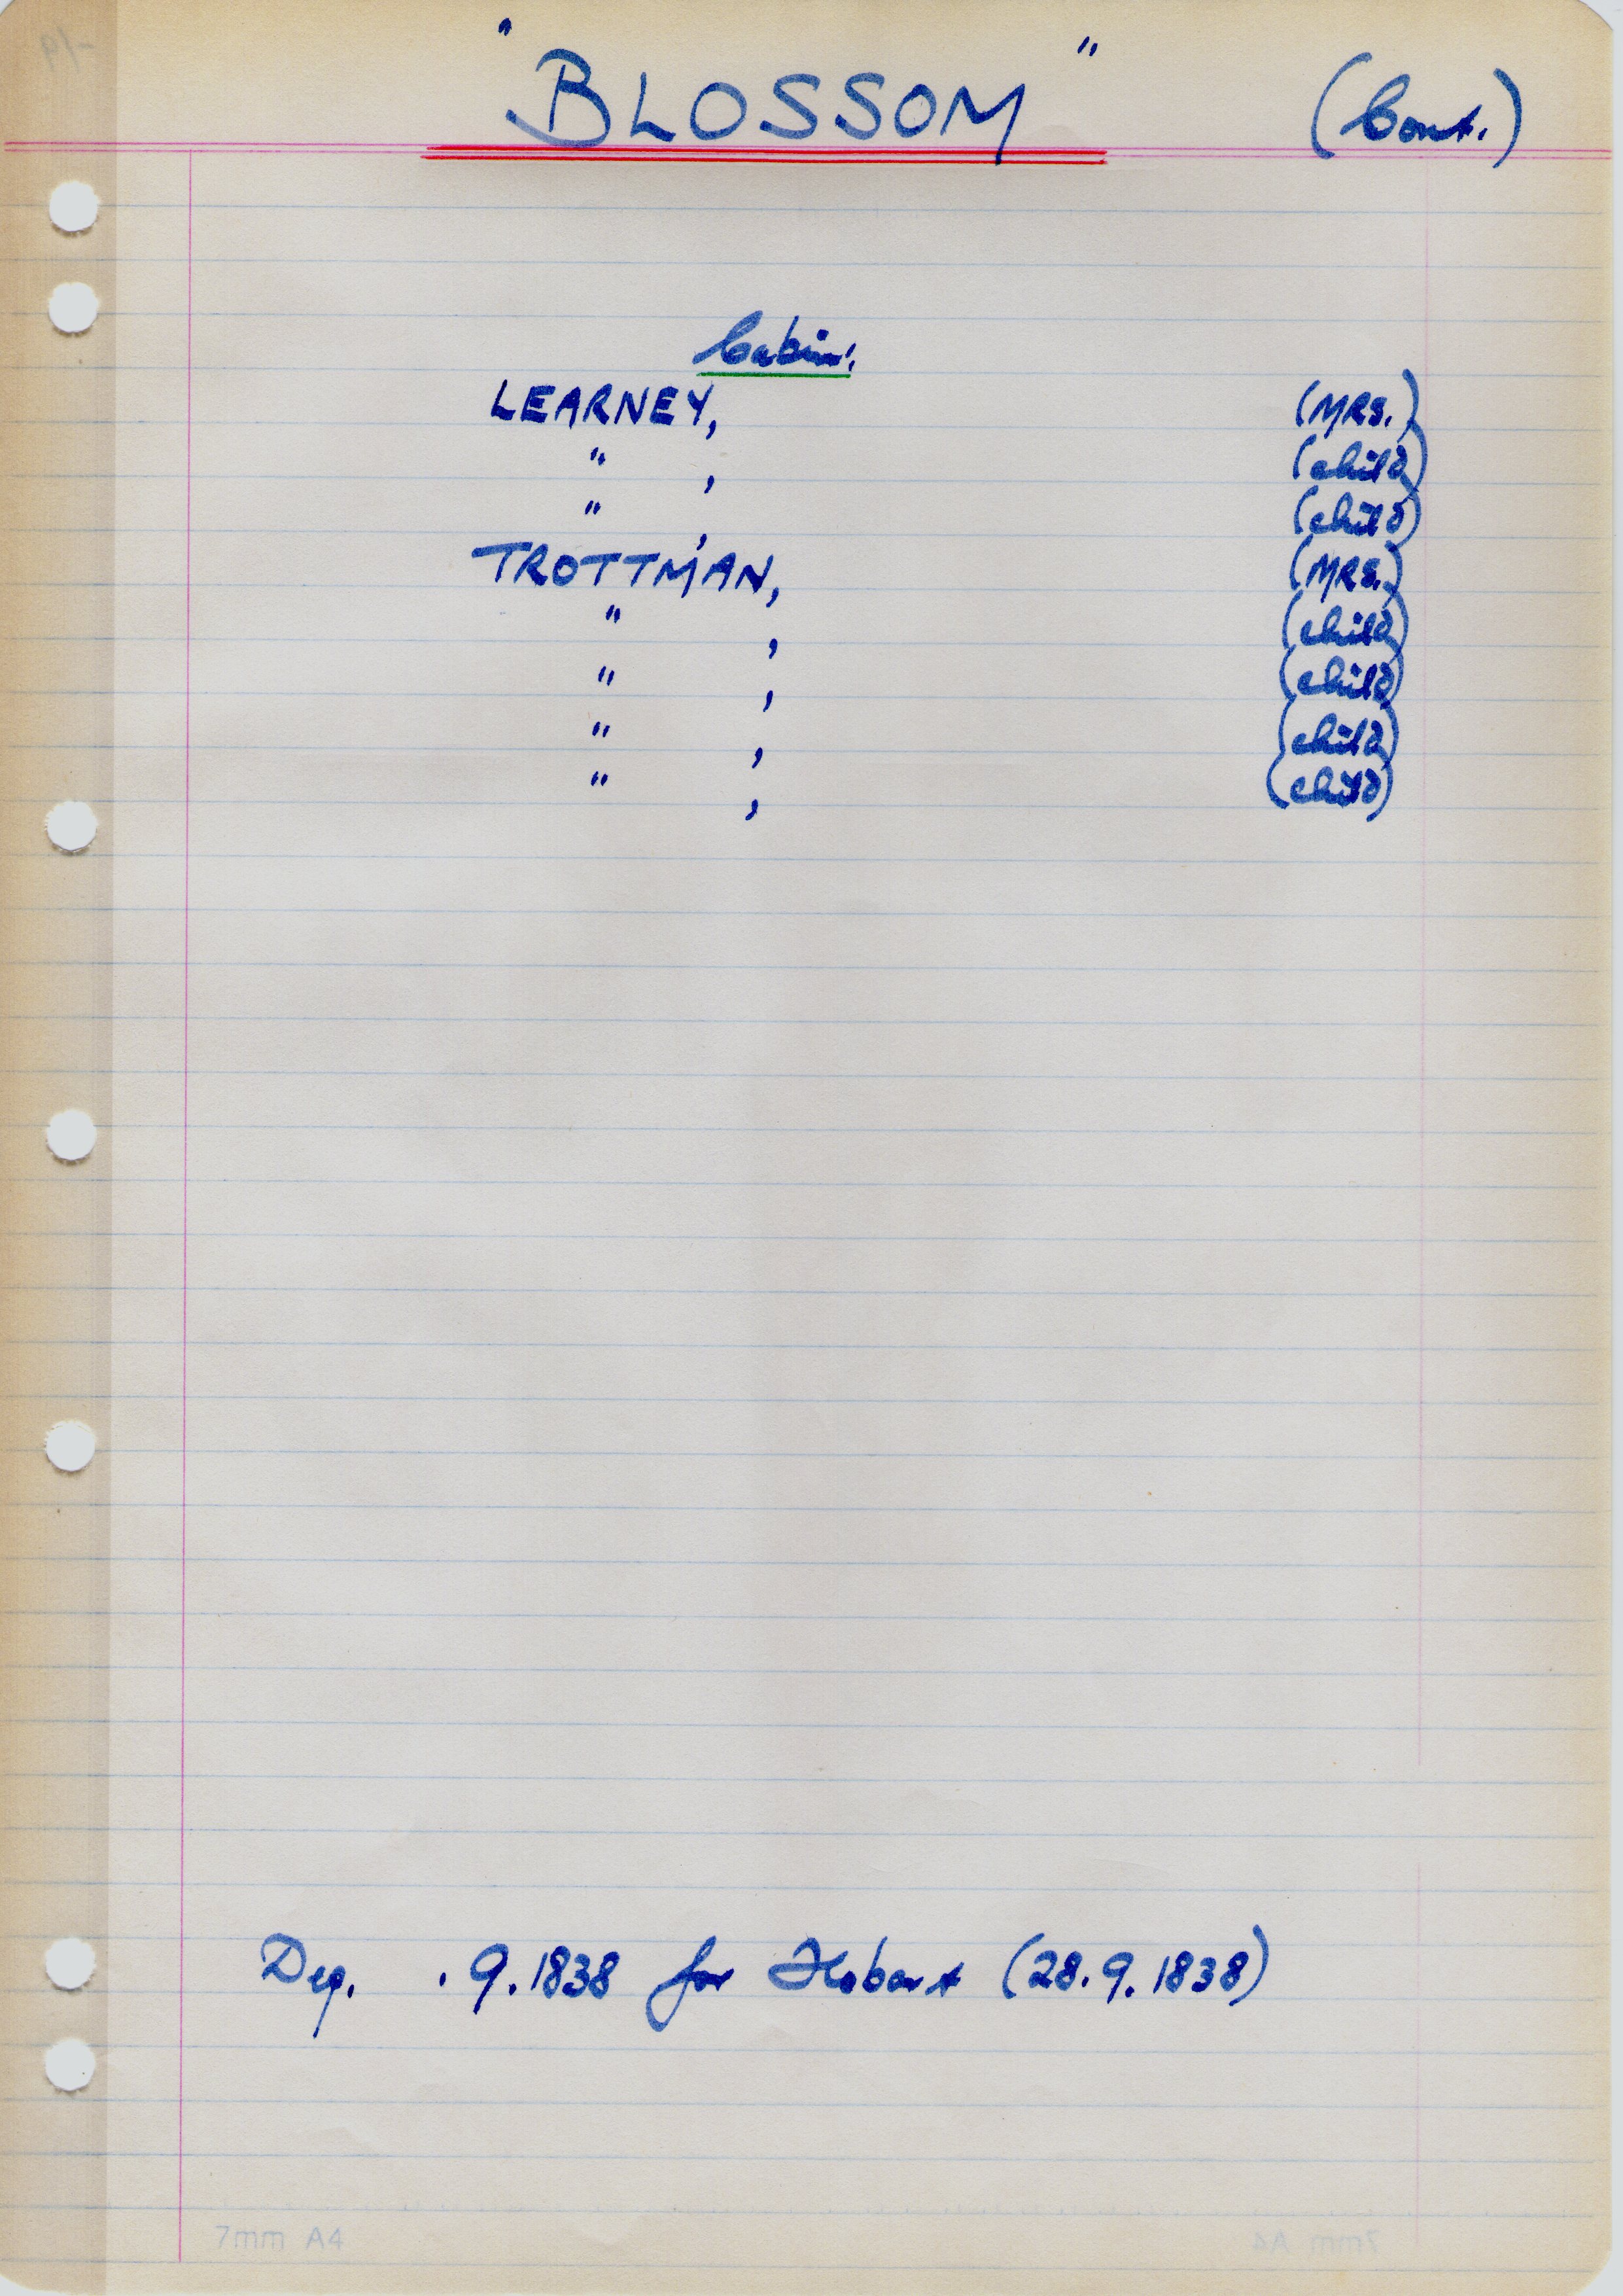 "BLOSSOM" (Cont.)
Cabin.
LEARNEY, (MRS.)
" , (child)
" , (child)
TROTTMAN, (MRS.)
" , (child)
" , (child)
" , (child)
" , (child)
Dep. . 9. 1838 for Hobart (28. 9. 1838)
7mm A4